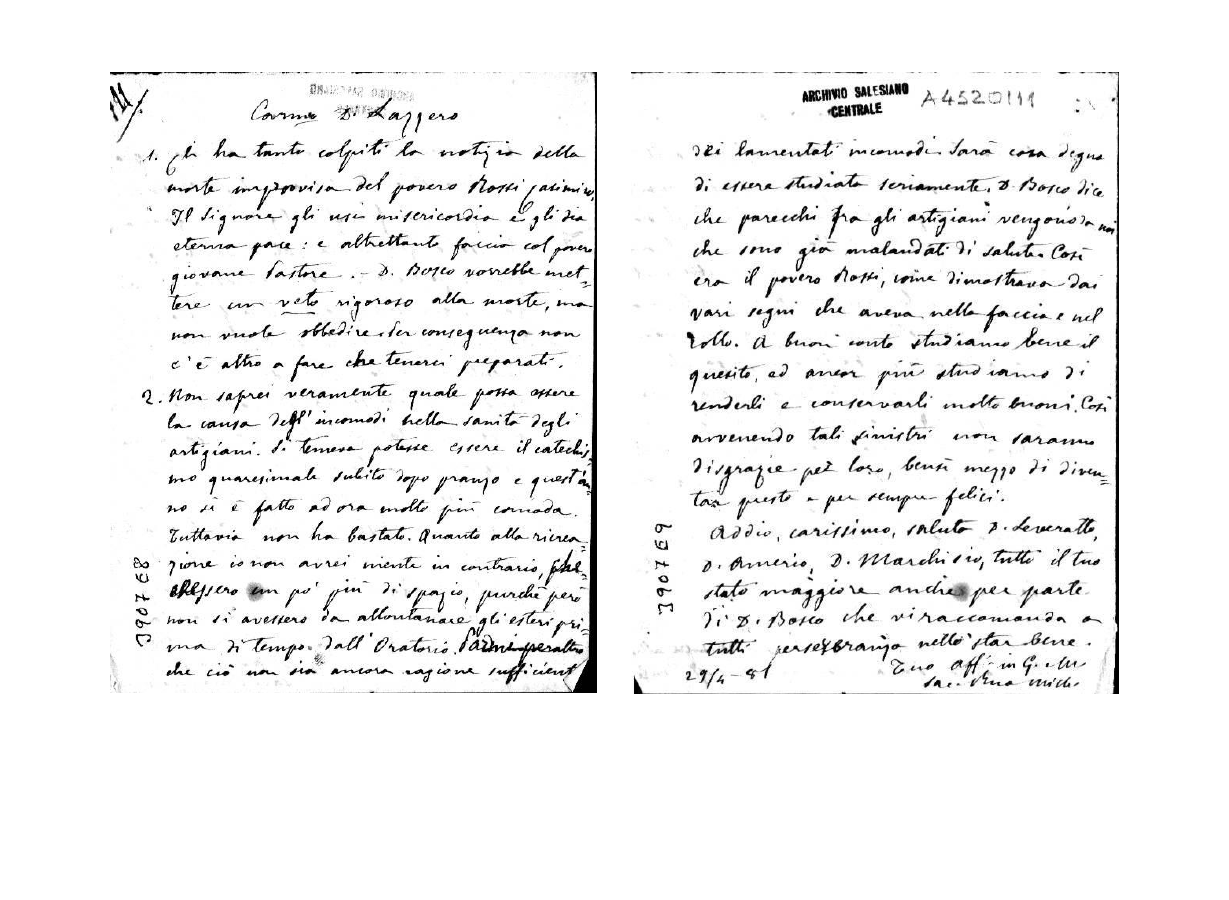 Carmo D. Lazzero
1. Ci ha tanto colpiti la notizia della
morte improvvisa del povero Rossi Gasimiro,
Il Signore gli usi misericordia e gli dia
eterna pace: e altrettanto faccia col povero
giovane Pastore. - D. Bosco vorrebbe met=
tere un veto rigoroso alla morte, ma
non vuole obbedire. Per conseguenza non
c'è altro a fare che tenerci preparati.
2. Non saprei veramente quale possa essere
la causa degl'incomodi nella sanità degli
artigiani. Si temeva potesse essere il catechis=
mo quaresimale subito dopo pranzo e quest'an=
no si è fatto ad ora molto più comoda.
Tuttavia non ha bastato. Quanto alla ricrea=
zione io non avrei niente in contrario, che
avessero un po' più di spazio, purchè però
non si avessero da allontanare gli esteri pri=
ma di tempo dall'Oratorio. Parmi peraltro
che ciò non sia ancora ragione sufficient
3907E8
ARCHIVIO SALESIANO
CENTRALE
A4520111
dei lamentati incomodi. Sarà cosa degna
di essere studiata seriamente. D. Bosco dice
che parecchi fra gli artigiani vengono da noi
che sono già malandati di salute. Così
era il povero Rossi, come dimostrava dai
vari segni che aveva nella faccia e nel
collo. A buon conto studiamo bene il
quesito, ed ancor più studiamo di
renderli e conservarli molto buoni. Così
avvenendo tali sinistri non saranno
disgrazie per loro, bensì mezzo di diven=
tar questo a per sempre felici.
Addio, carissimo, saluta D. Leveratto,
D. Amerio, D. Marchisio, tutto il tuo
stato maggiore anche per parte
di D. Bosco che vi raccomanda a
tutti perseveranza nello star bene.
29/4-81
Tuo aff. in G. e M.
Sac. Rua Mich.
3907E9